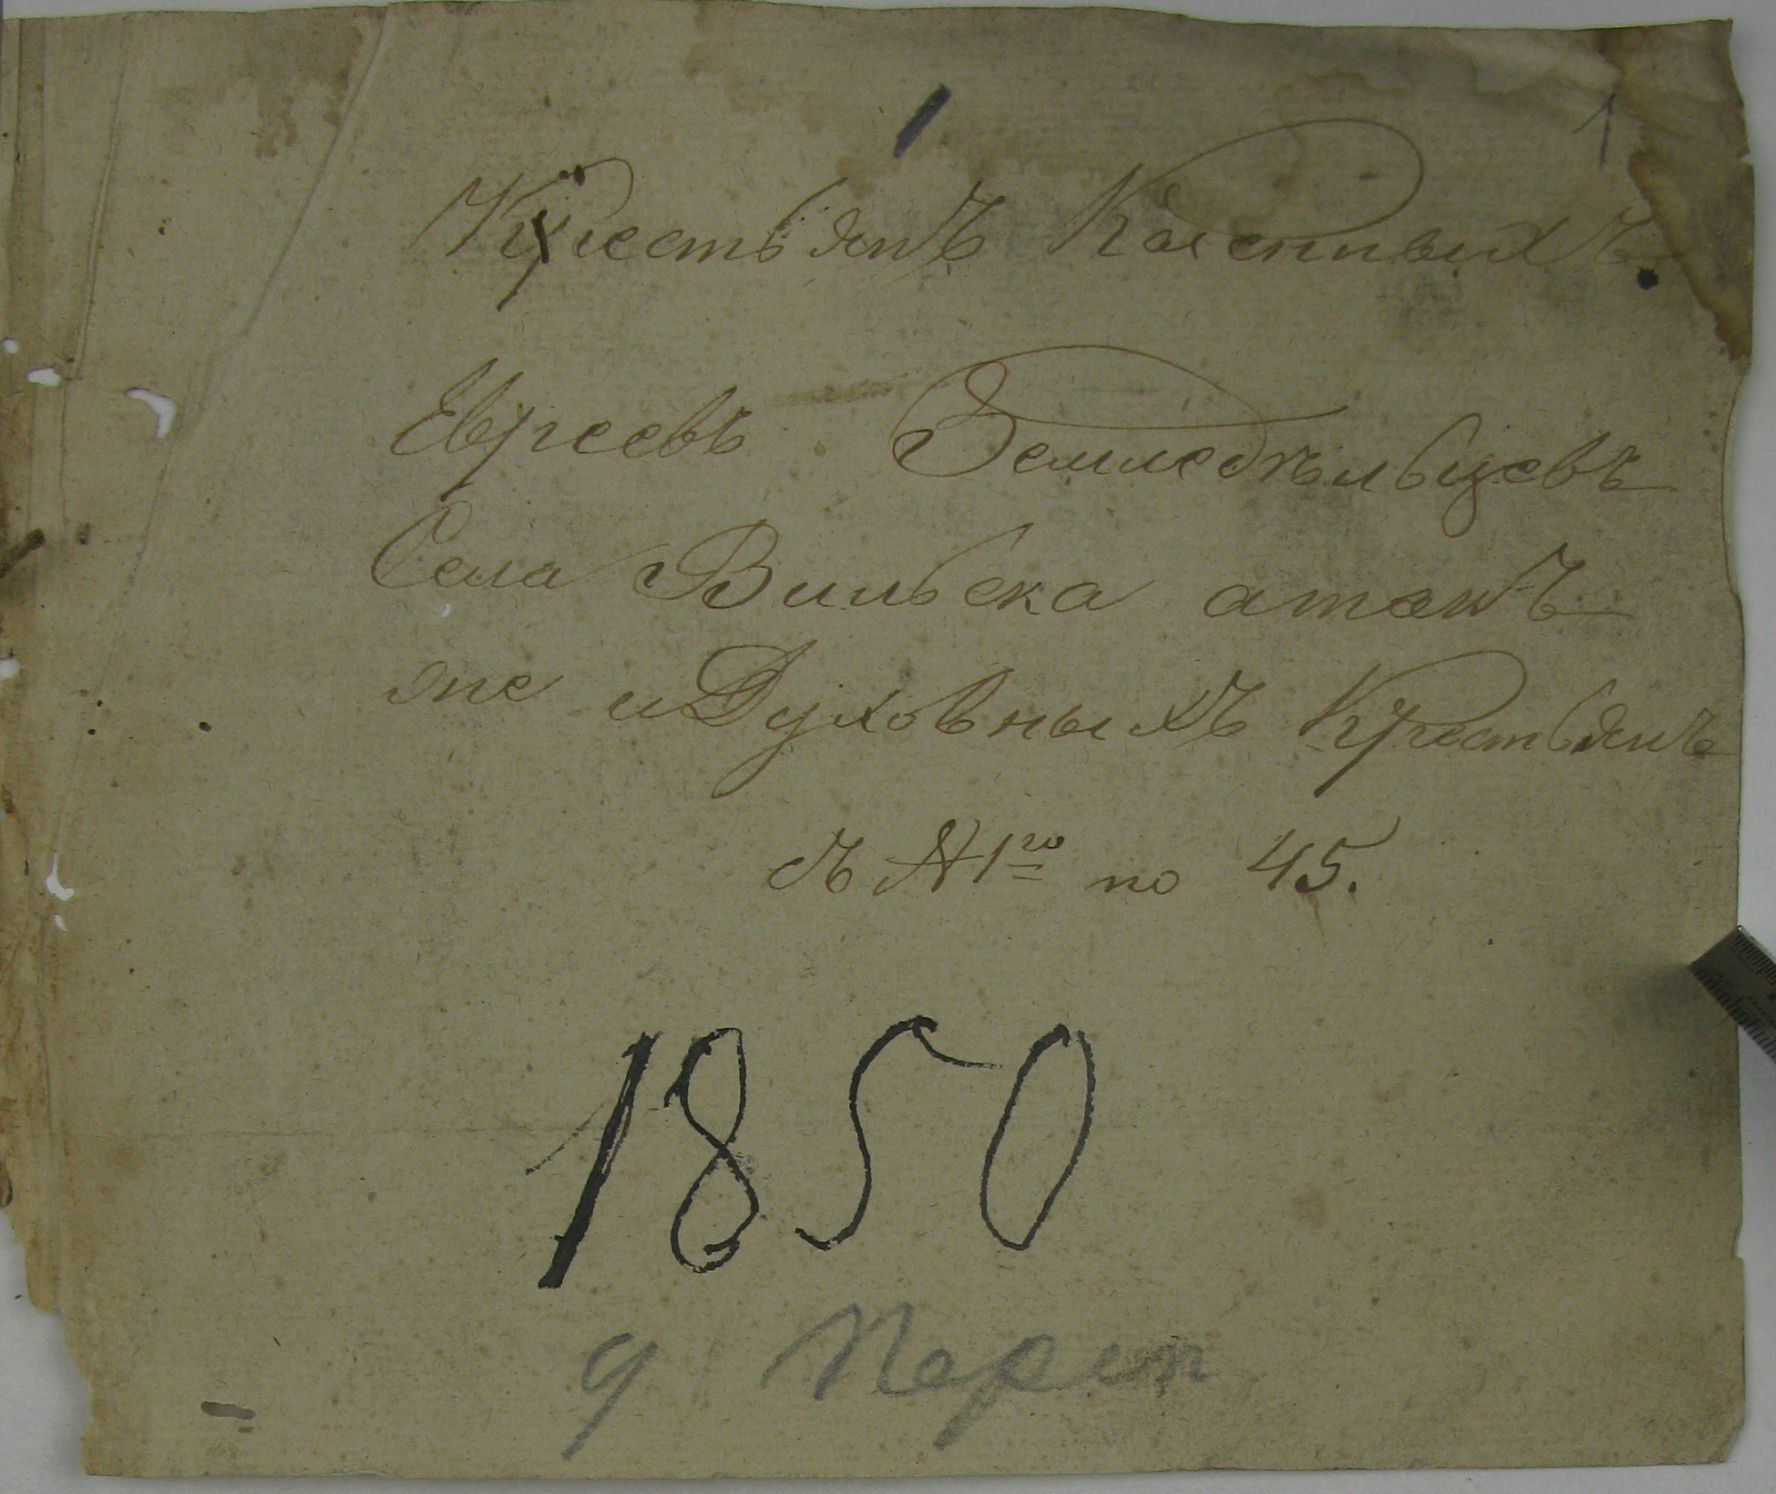 1
Крестьянъ Казенныхъ
Евреевъ Земледѣльцевъ
Села Вильска атакъ
же и Духовныхъ Крестьянъ
съ №1го по 45.
1850
9 Переп